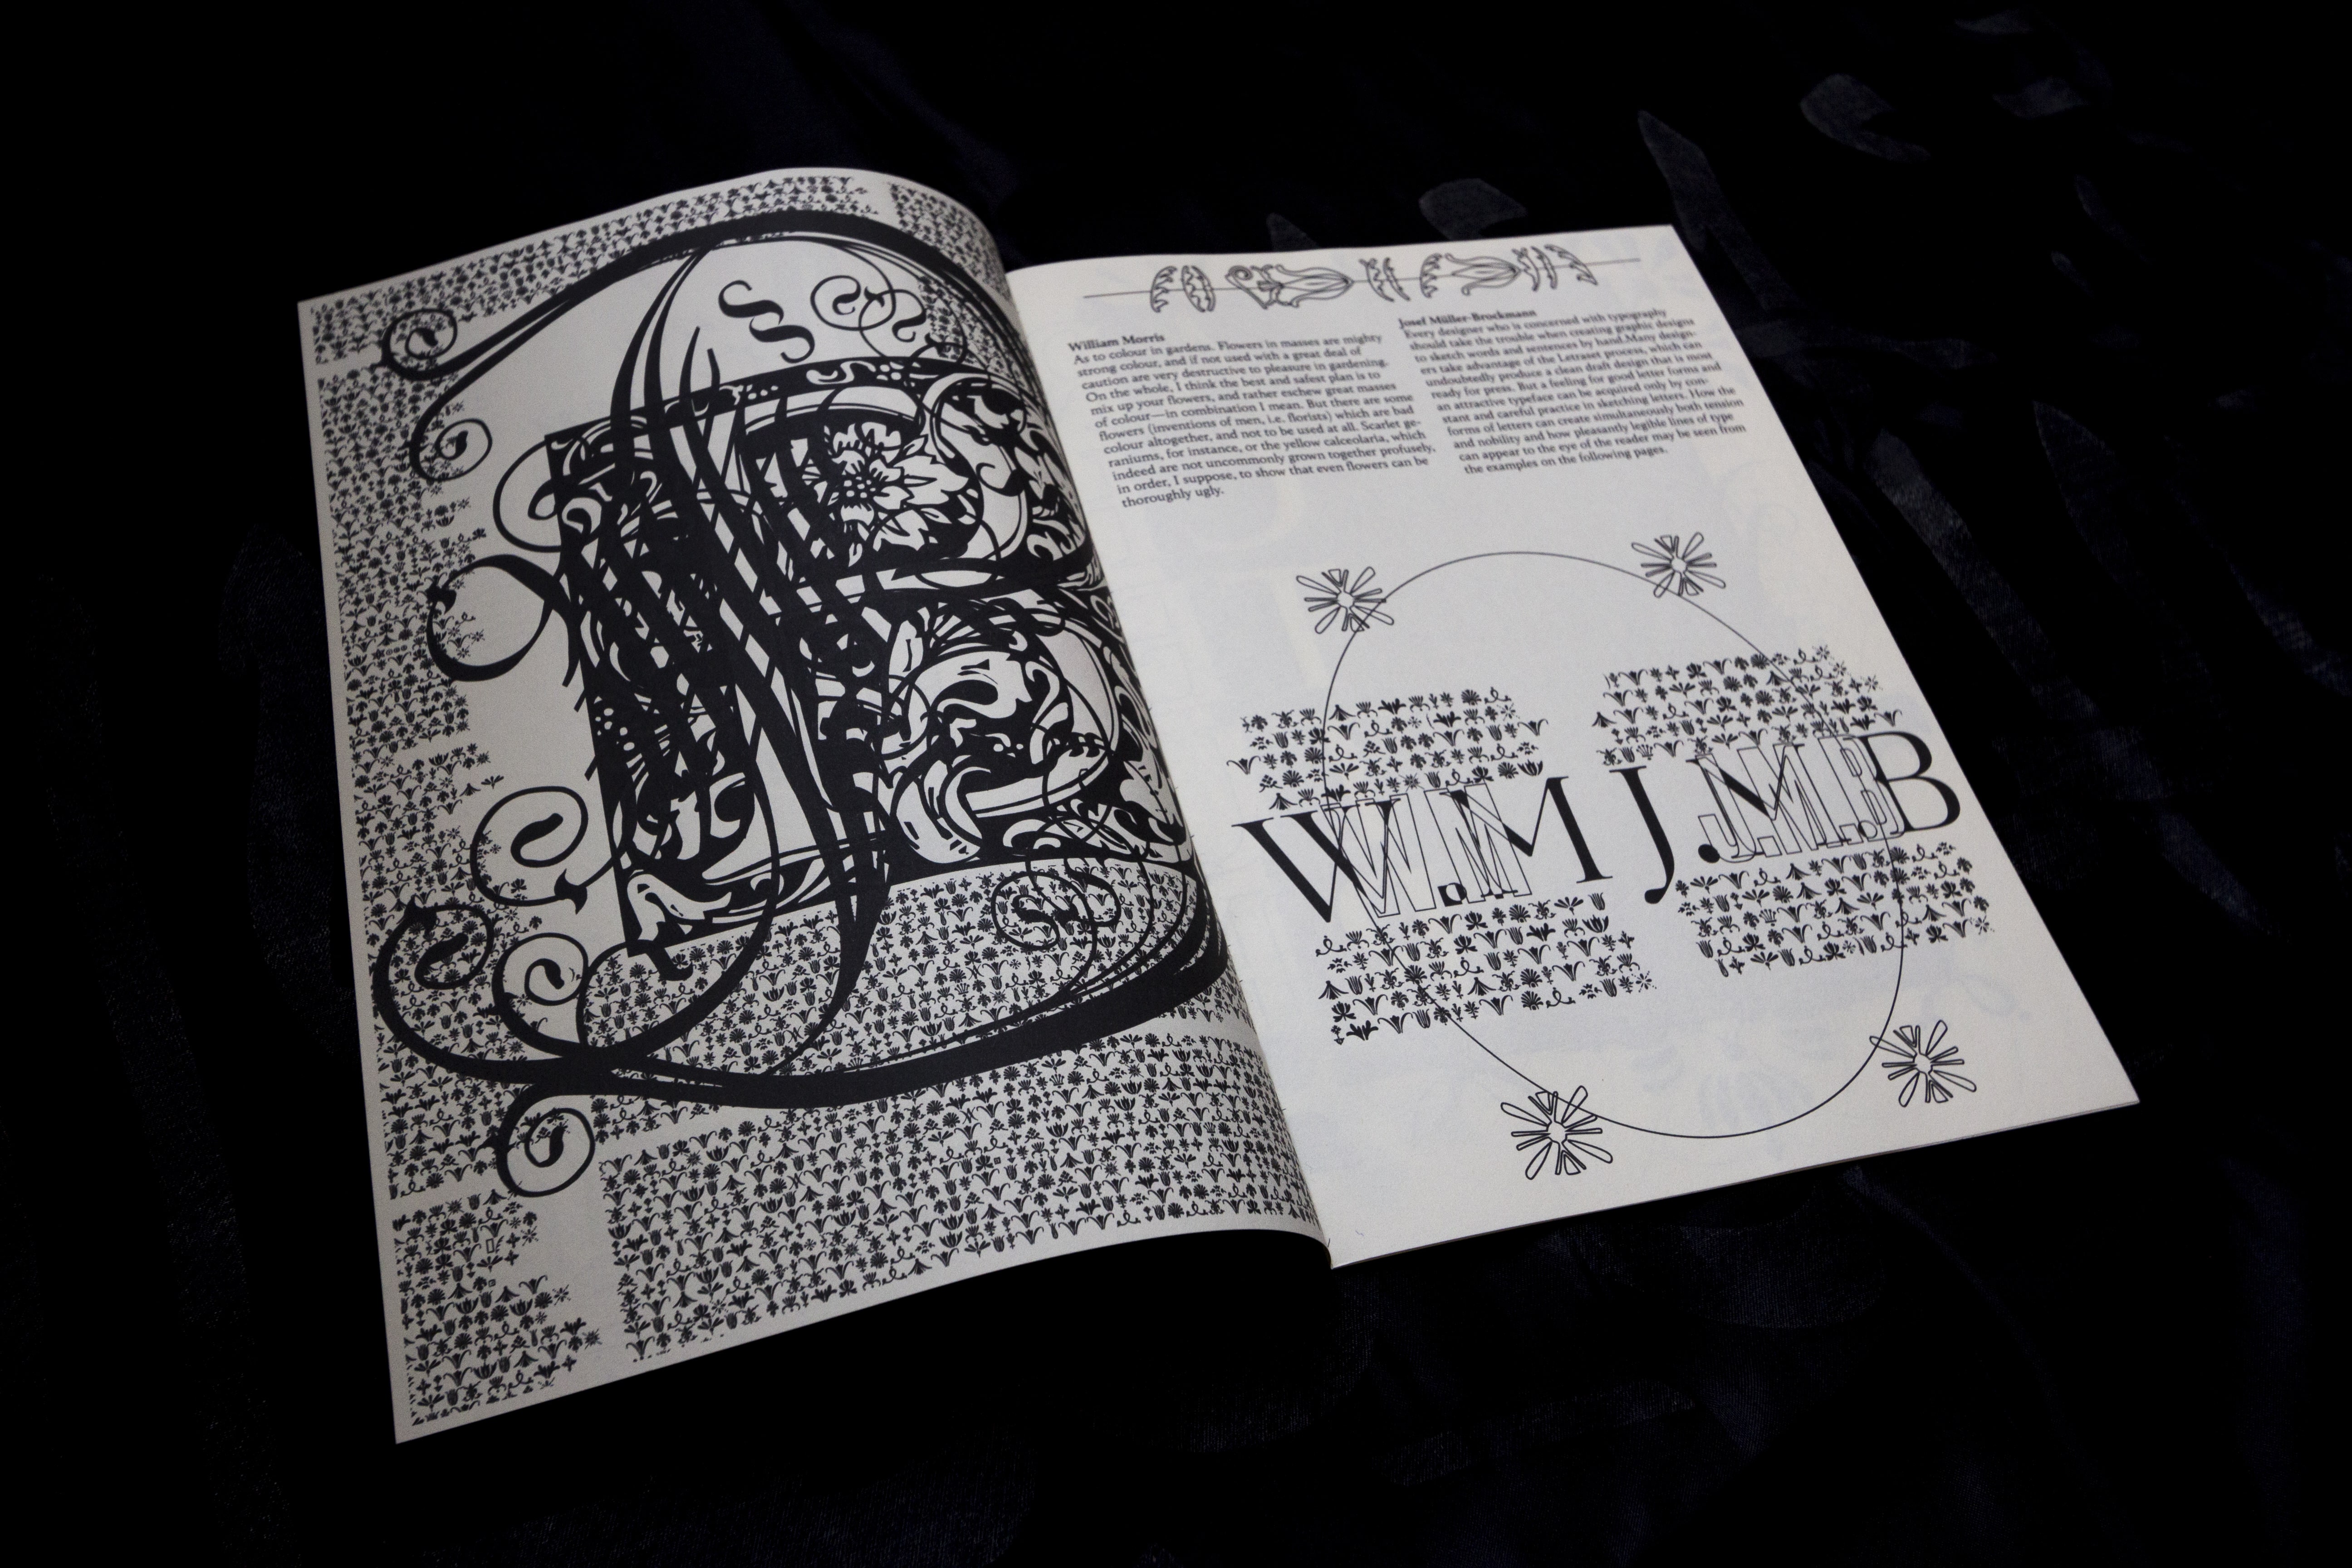 William Morris
As to colour in gardens. Flowers in masses are mighty
strong colour, and if not used with a great deal of
caution are very destructive to pleasure in gardening.
On the whole, I think the best and safest plan is to
mix up your flowers, and rather eschew great masses
of colour—in combination I mean. But there are some
flowers (inventions of men, i.e. florists) which are bad
colour altogether, and not to be used at all. Scarlet ge-
raniums, for instance, or the yellow calceolaria, which
indeed are not uncommonly grown together profusely,
in order, I suppose, to show that even flowers can be
thoroughly ugly.
Josef Müller-Brockmann
Every designer who is concerned with typography
should take the trouble when creating graphic designs
to sketch words and sentences by hand.Many design-
ers take advantage of the Letraset process, which can
undoubtedly produce a clean draft design that is most
ready for press. But a feeling for good letter forms and
an attractive typeface can be acquired only by con-
stant and careful practice in sketching letters. How the
forms of letters can create simultaneously both tension
and nobility and how pleasantly legible lines of type
can appear to the eye of the reader may be seen from
the examples on the following pages.
W.M J.M.B
W.M J.M.B